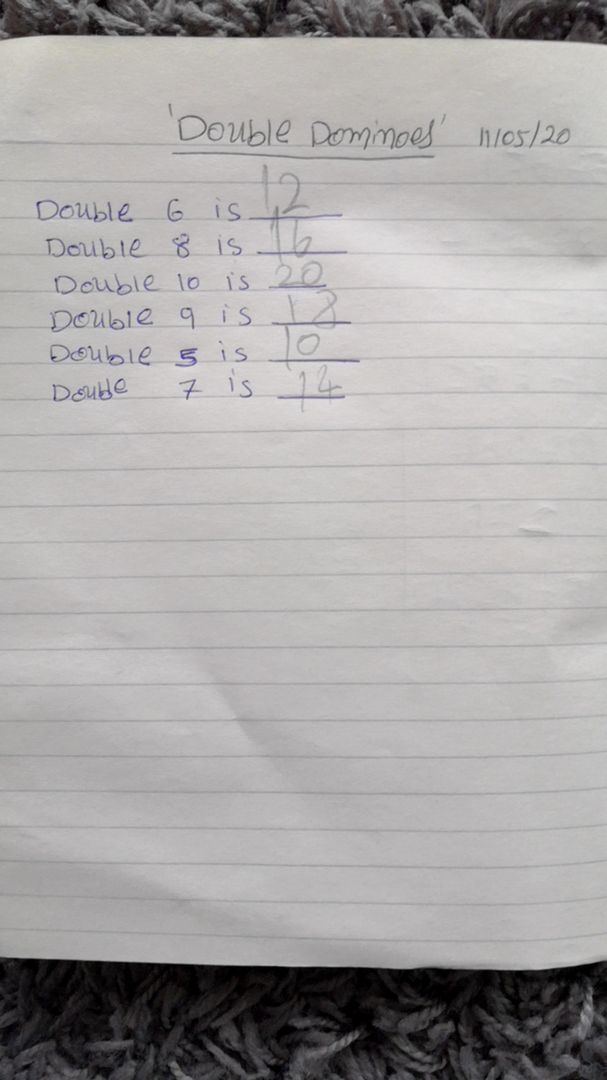 'Double Dominoes' 11/05/20
Double 6 is 12
Double 8 is 16
Double 10 is 20
Double 9 is 18
Double 5 is 10
Double 7 is 14